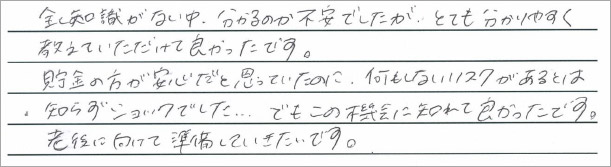 全く知識がない中、分かるのか不安でしたが、とても分かりやすく
教えていただけて良かったです。
貯金の方が安心だと思っていたのに、何もしないリスクがあるとは
知らずショックでした… でもこの機会に知れて良かったです。
老後に向けて準備していきたいです。